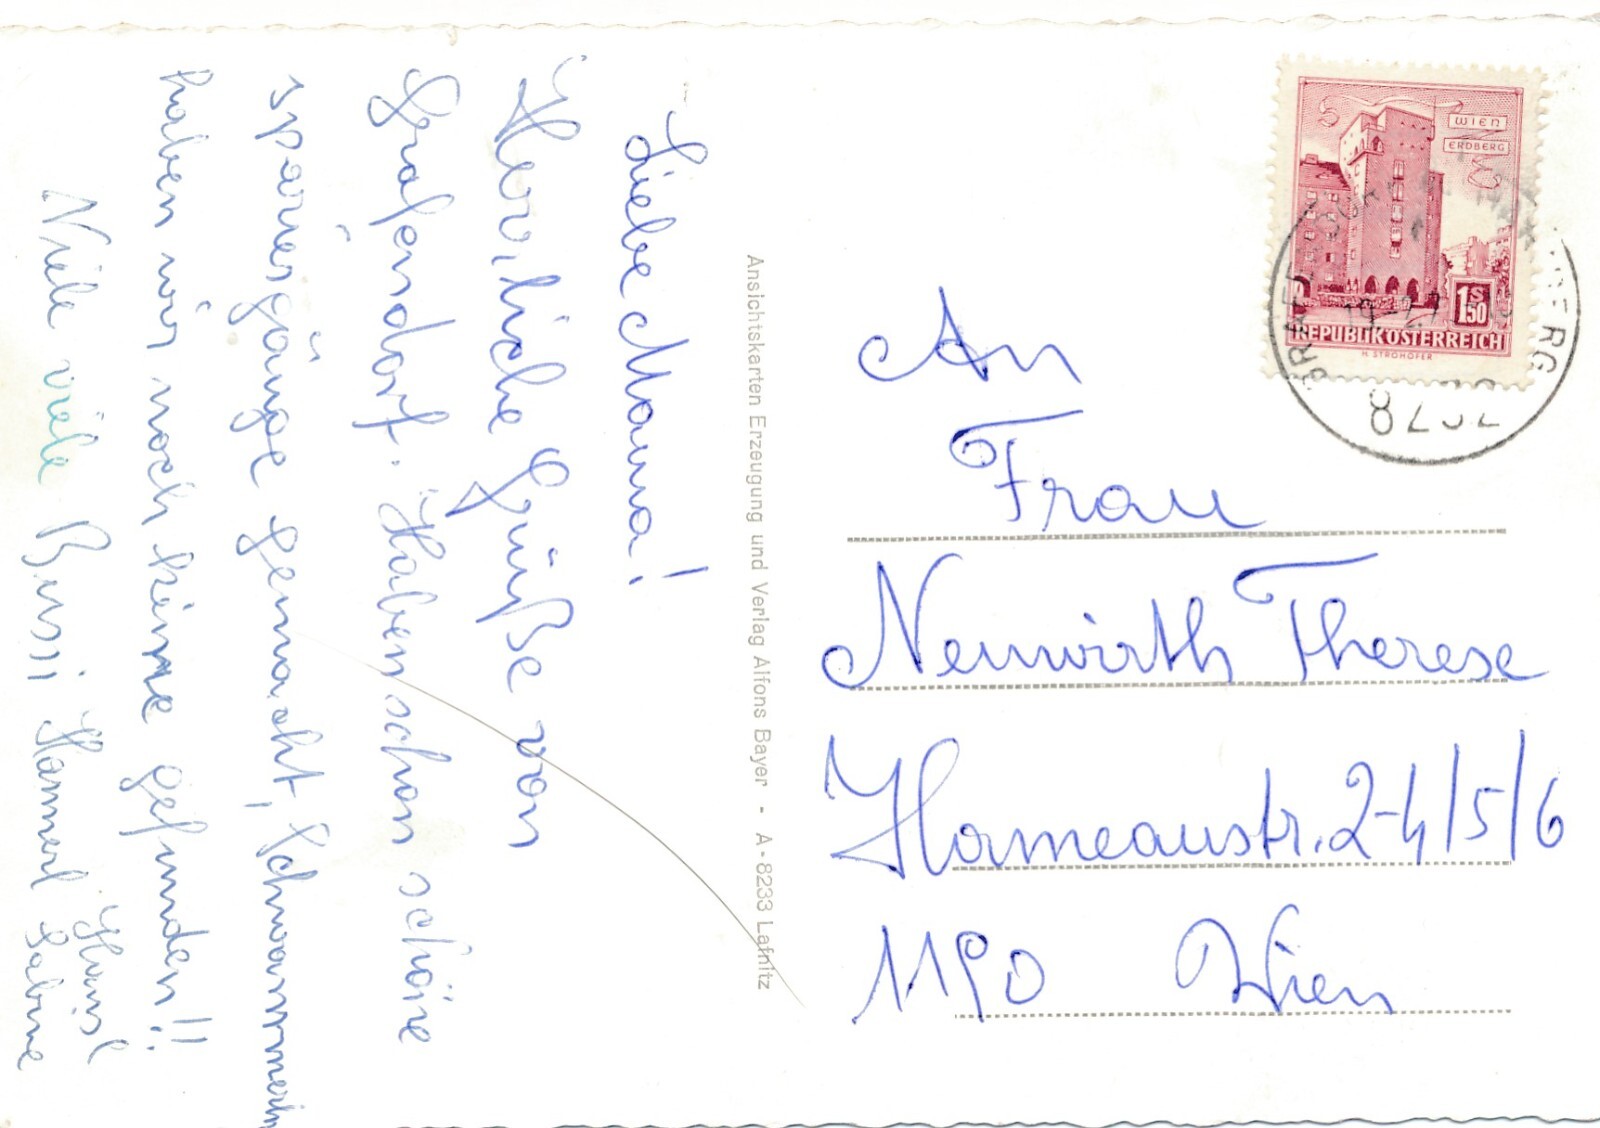 Liebe Mama!
Herzliche Grüße von
Grafendorf. Haben schon schöne
Spaziergänge gemacht, Schwammerln
haben wir noch keine gefunden!!
Viele viele Bussi Hammerl Sabine
Hansl
Ansichtskarten Erzeugung und Verlag Alfons Bayer - A-8233 Lafnitz
WIEN
ERDBERG
1S50
REPUBLIK ÖSTERREICH
H. STROHOFER
8232
An
Frau
Neuwirth Therese
Hameaustr. 2-4/5/6
1190 Wien